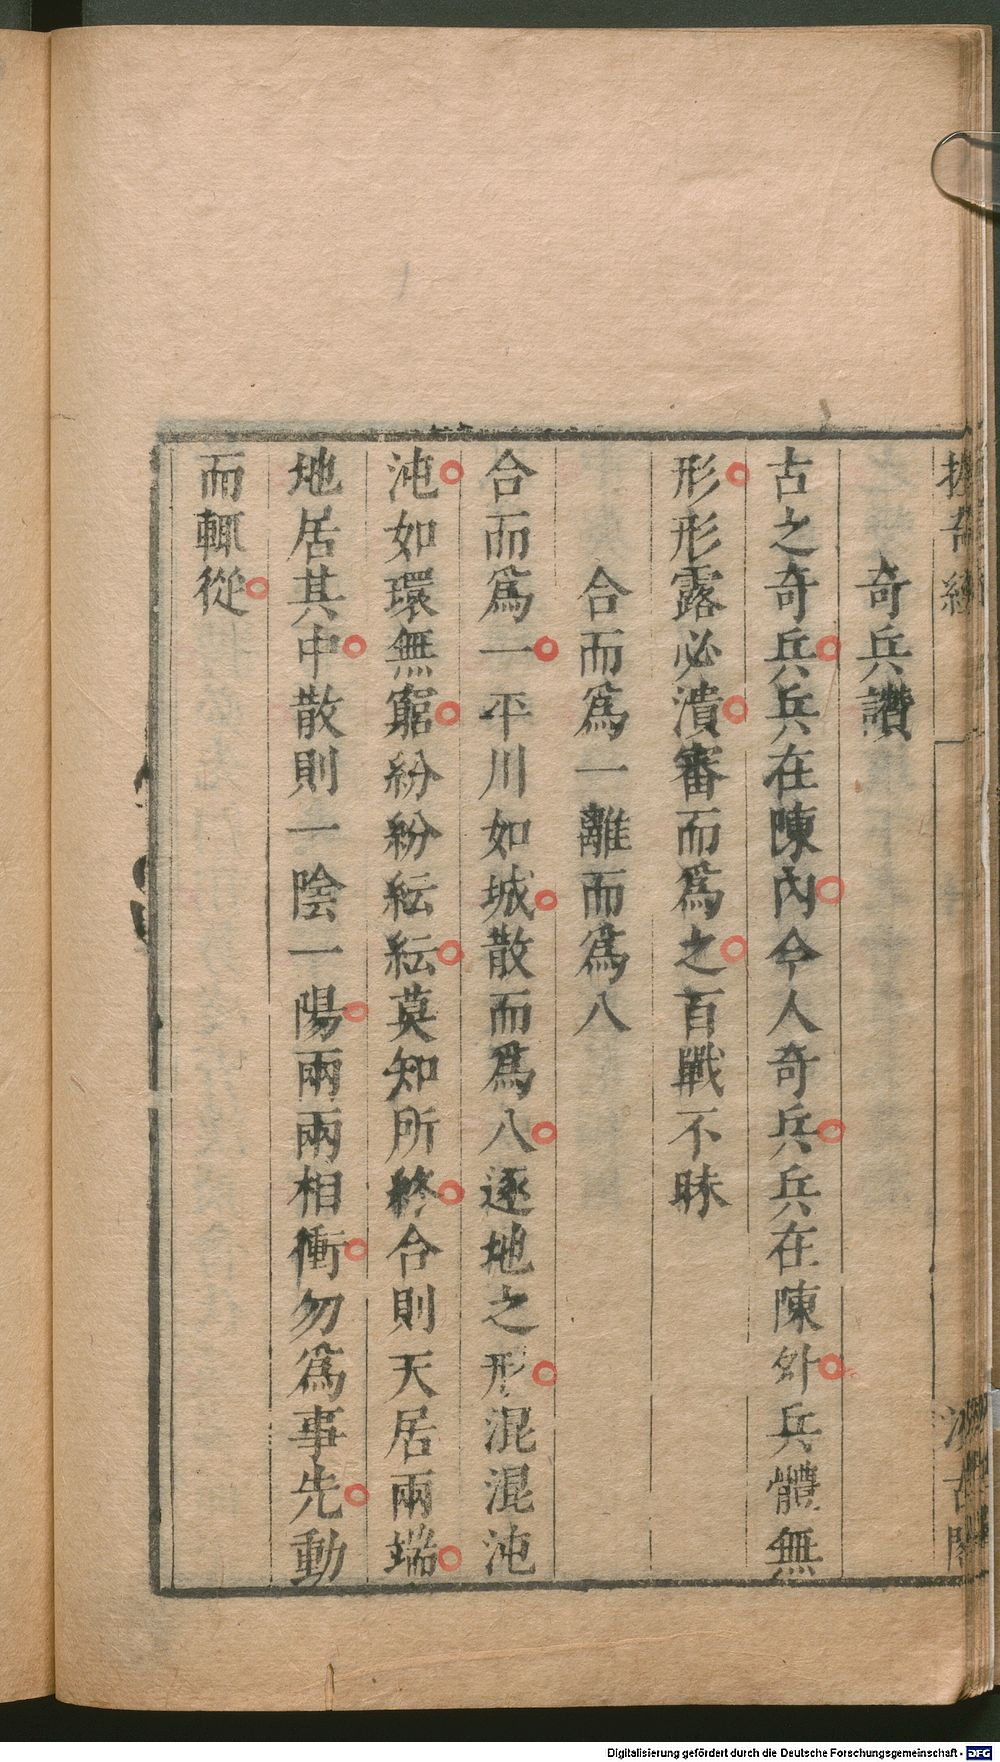 握奇經
汲古閣
奇兵讚
古之奇兵兵在陳內今人奇兵兵在陳外兵體無
形形露必潰審而爲之百戰不昧
合而爲一離而爲八
合而爲一平川如城散而爲八逐地之形混混沌
沌如環無窮紛紛紜紜莫知所終合則天居兩端
地居其中散則一陰一陽兩兩相衝勿爲事先動
而輒從
Digitalisierung gefördert durch die Deutsche Forschungsgemeinschaft - DFG